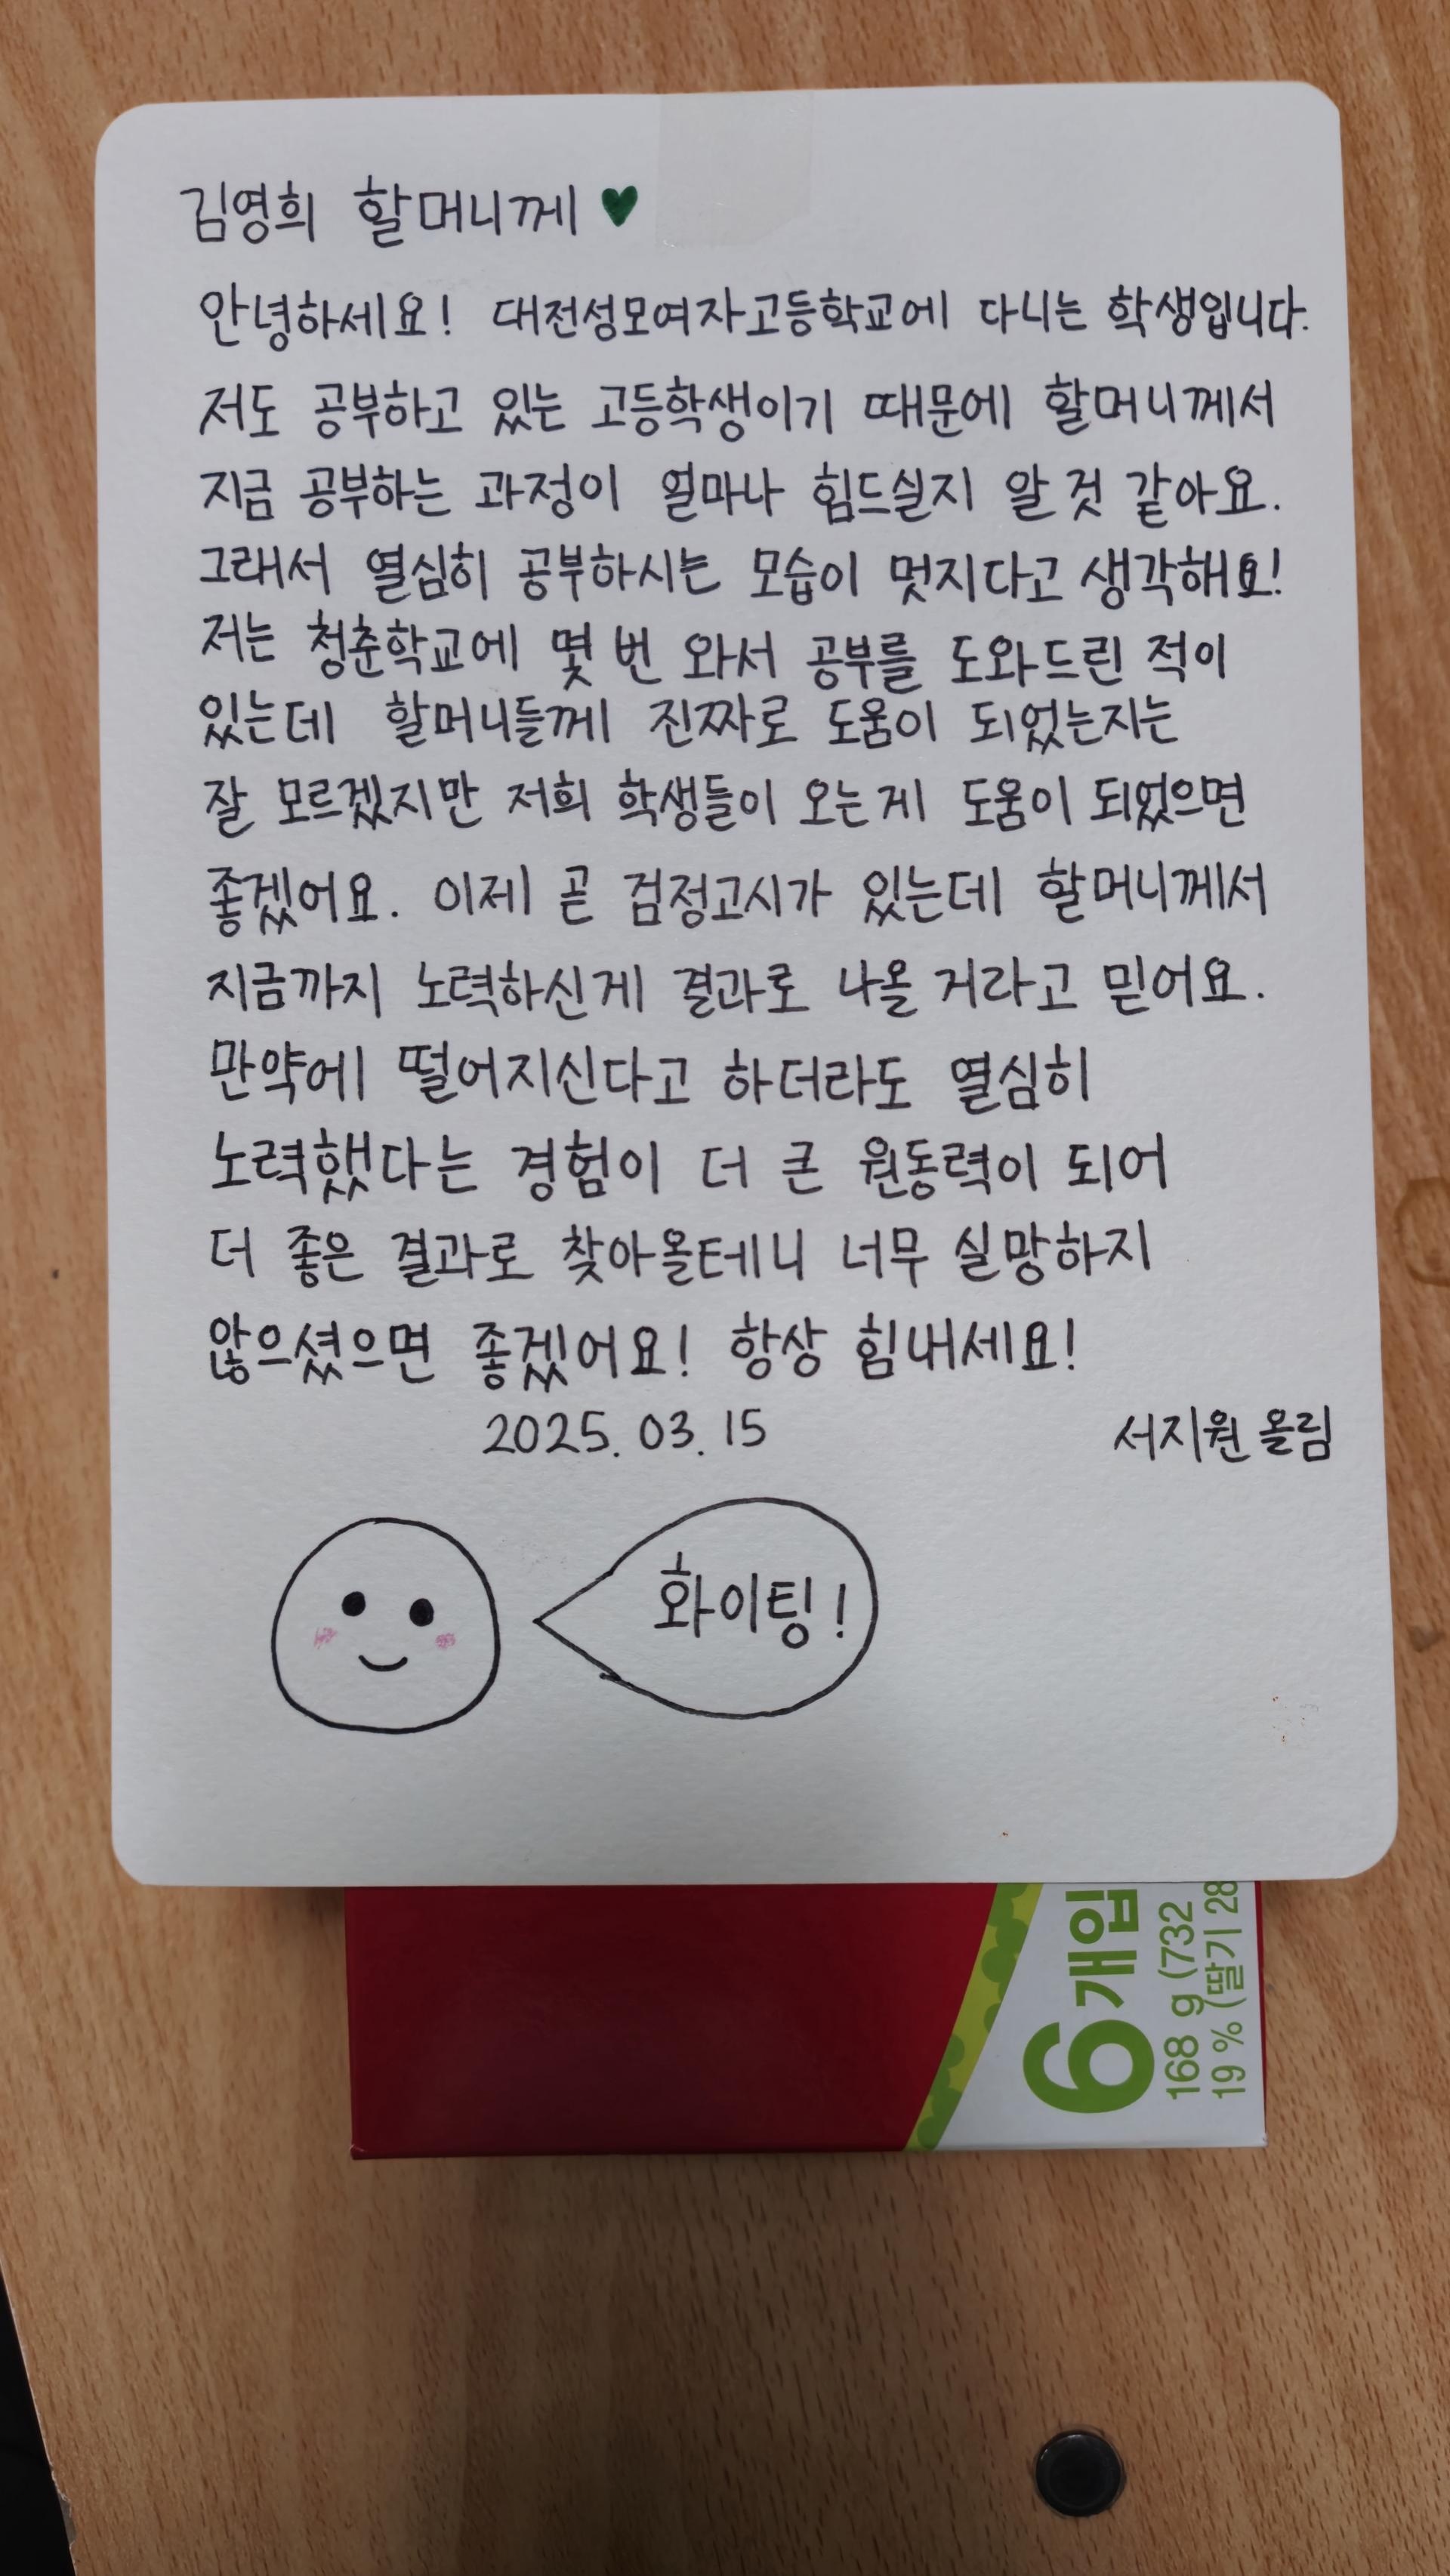 김영희 할머니께 ♥
안녕하세요! 대전성모여자고등학교에 다니는 학생입니다.
저도 공부하고 있는 고등학생이기 때문에 할머니께서
지금 공부하는 과정이 얼마나 힘드실지 알 것 같아요.
그래서 열심히 공부하시는 모습이 멋지다고 생각해요!
저는 청춘학교에 몇 번 와서 공부를 도와드린 적이
있는데 할머니들께 진짜로 도움이 되었는지는
잘 모르겠지만 저희 학생들이 오는게 도움이 되었으면
좋겠어요. 이제 곧 검정고시가 있는데 할머니께서
지금까지 노력하신게 결과로 나올 거라고 믿어요.
만약에 떨어지신다고 하더라도 열심히
노력했다는 경험이 더 큰 원동력이 되어
더 좋은 결과로 찾아올테니 너무 실망하지
않으셨으면 좋겠어요! 항상 힘내세요!
2025. 03. 15 서지원 올림
화이팅!
6개입
168 g (732
19 % (딸기 28